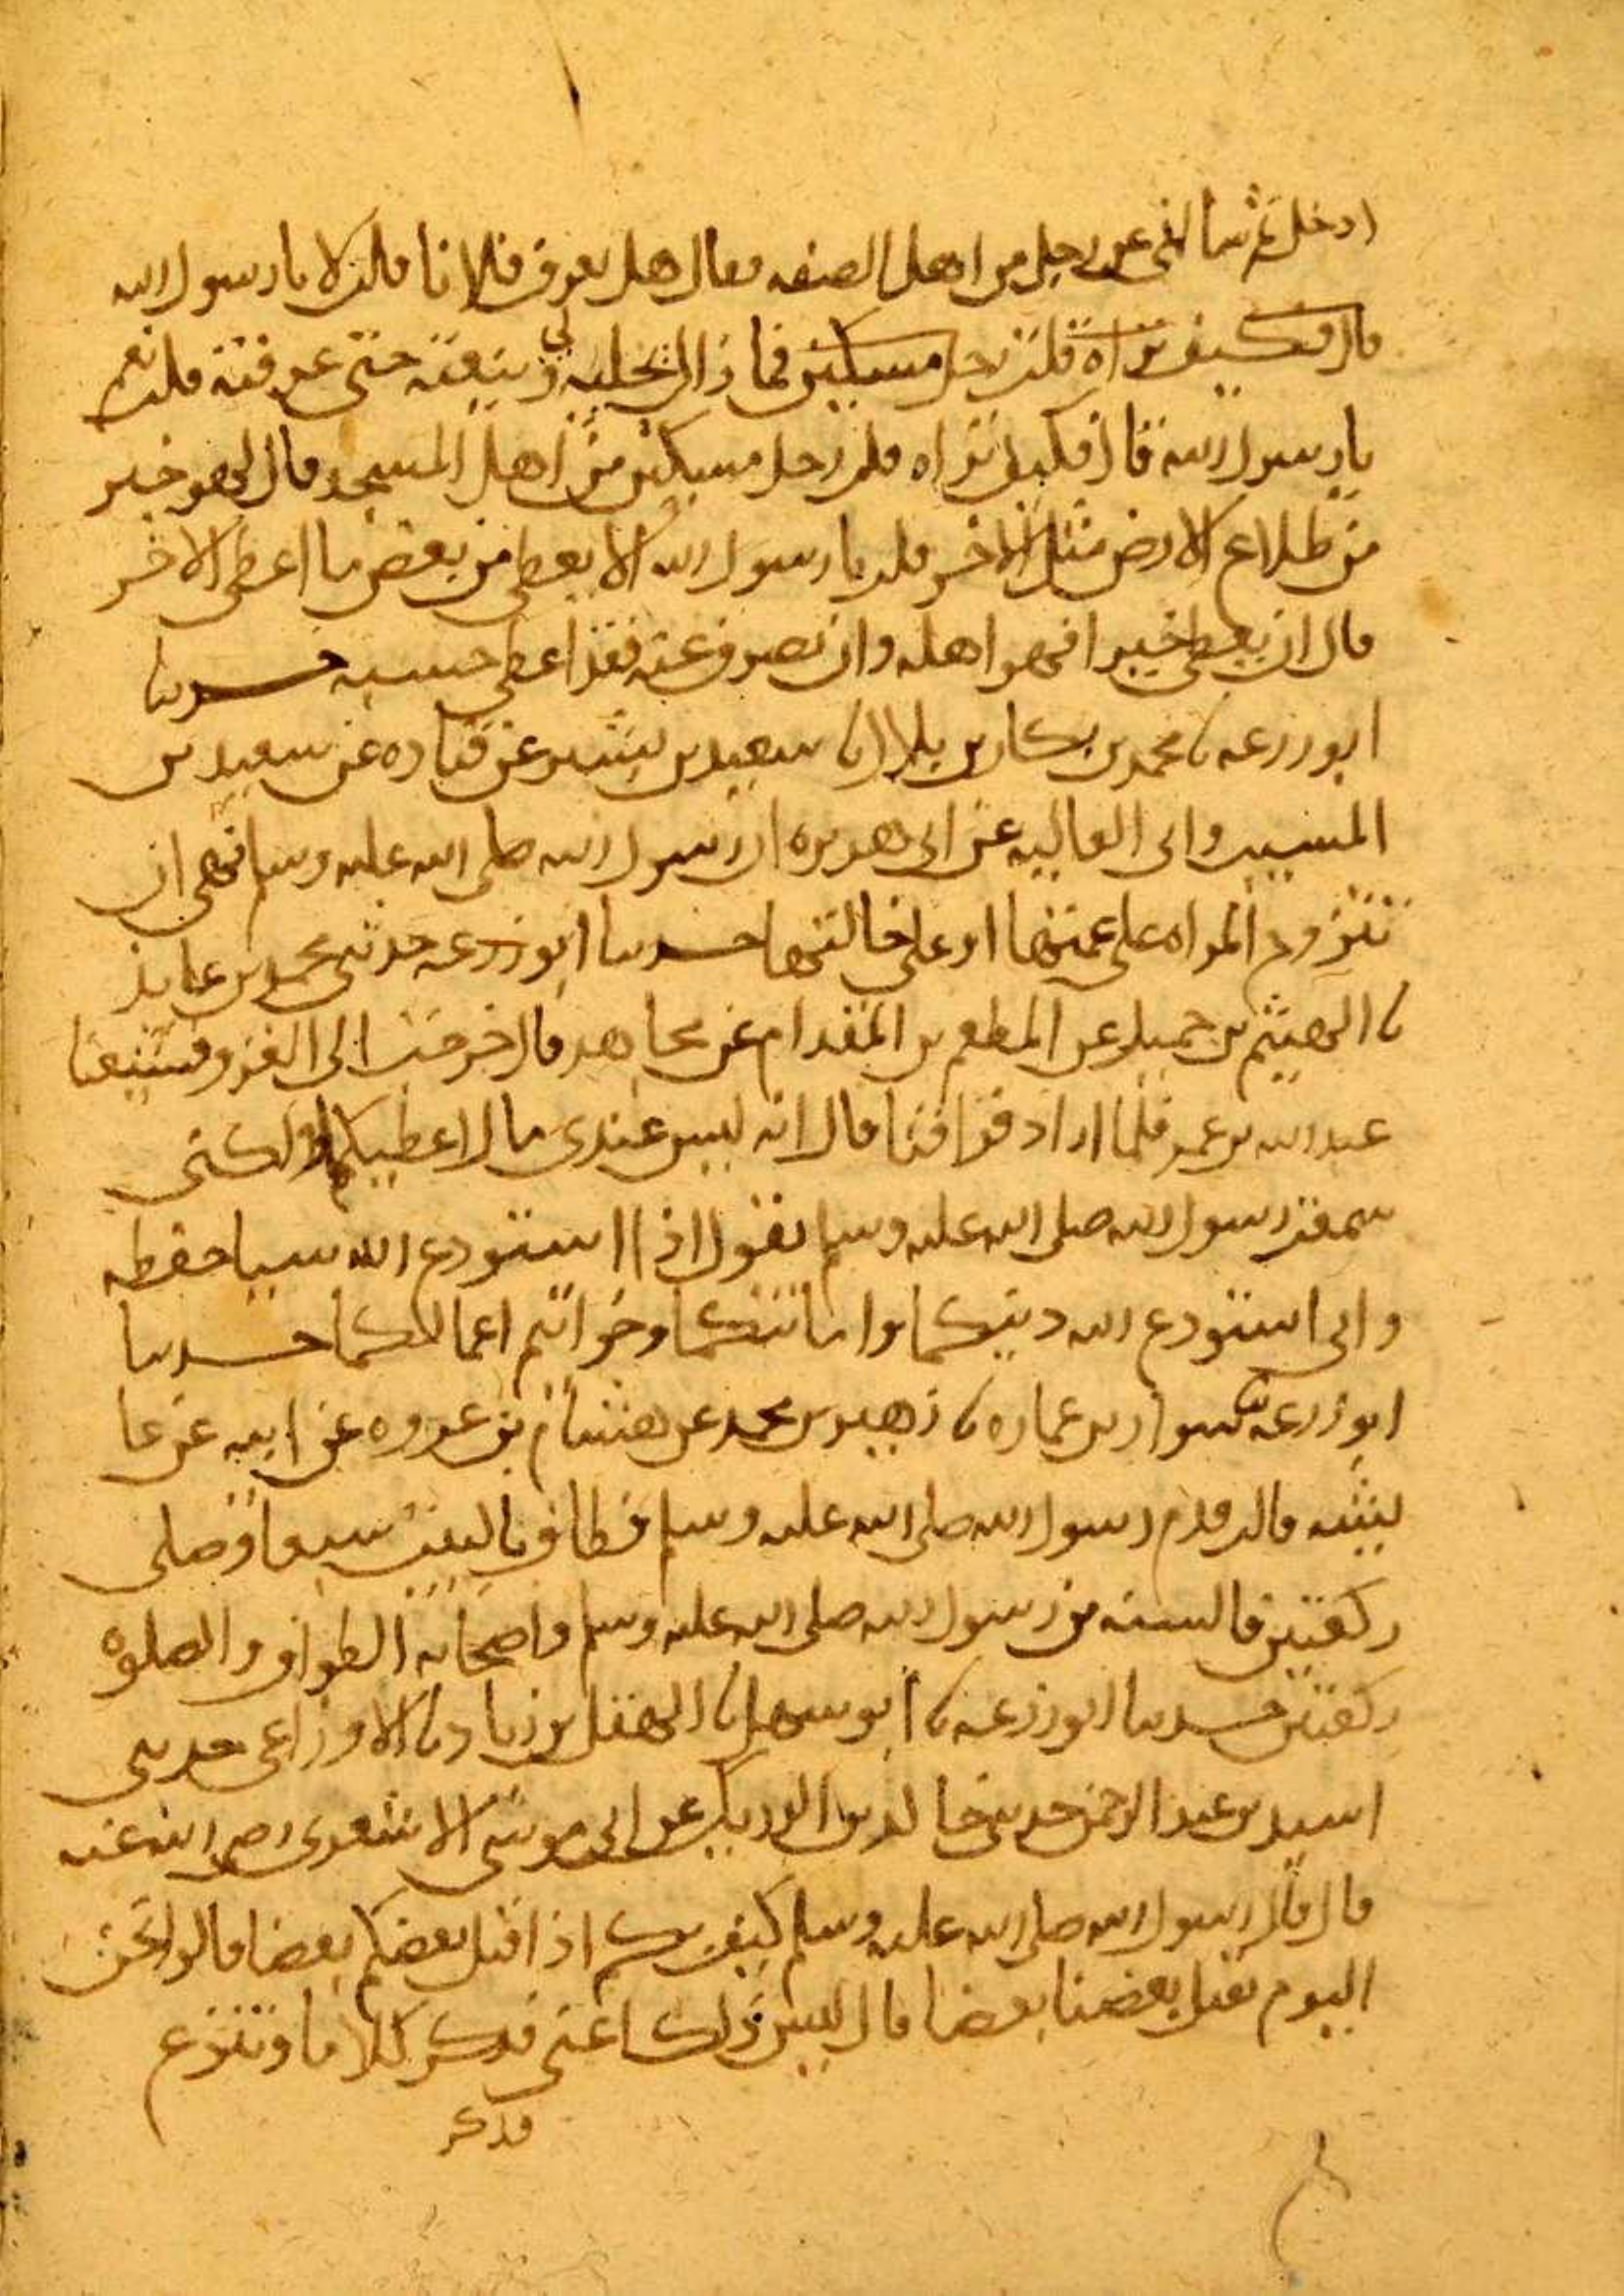 ادخل ثم سالني عن رجل من اهل الصفه فقال هل تعرف فلانا قلت لا يا رسول الله
قال فكيف تراه قلت رجل مسكين فما زال يحليه لي وينعته حتى عرفته قلت نعم
يا رسول الله قال فكيف تراه قلت رجل مسكين من اهل المسجد قال لهو خير
من طلاع الارض مثل الاخر قلت يا رسول الله الا يعطى من بعض ما اعطي الاخر
قال ان يعطى خيرا فهو اهله وان تصرف عنه فقد اعطي حسبه حدثنا
ابو زرعه نا محمد بن بكار بن بلال نا سعيد بن بشير عن قتاده عن سعيد بن
المسيب وابي العاليه عن ابي هريره ان رسول الله صلى الله عليه وسلم نهى ان
تتزوج المراه على عمتها او على خالتها حدثنا ابو زرعه حدثني محمد بن عايذ
نا الهيثم بن حميد عن المطعم بن المقدام عن مجاهد قال خرجت الى الغزو فشيعنا
عبد الله بن عمر فلما اراد فراقنا قال انه ليس عندي مال اعطيكما ولكني
سمعت رسول الله صلى الله عليه وسلم يقول اذا استودع الله شيا حفظه
واني استودع الله دينكما واماناتكما وخواتم اعمالكما حدثنا
ابو زرعه نا سوار بن عماره نا زهير بن محمد عن هشام بن عروه عن ابيه عن عا
يشه قالت قدم رسول الله صلى الله عليه وسلم فطاف بالبيت سبعا وصلى
ركعتين فالسنه من رسول الله صلى الله عليه وسلم واصحابه الطواف والصلوه
ركعتين حدثنا ابو زرعه نا ابو مسهر نا الهقل بن زياد نا الاوزاعي حدثني
اسيد بن عبد الرحمن حدثني خالد بن الدريك عن ابي موسى الاشعري رضي الله عنه
قال قال رسول الله صلى الله عليه وسلم كيف بكم اذا اقتتل بعضكم بعضا قالوا نحن
اليوم نقتل بعضنا بعضا قال ليس ذلك اعني فذكر كلاما وتنزع
فذكر